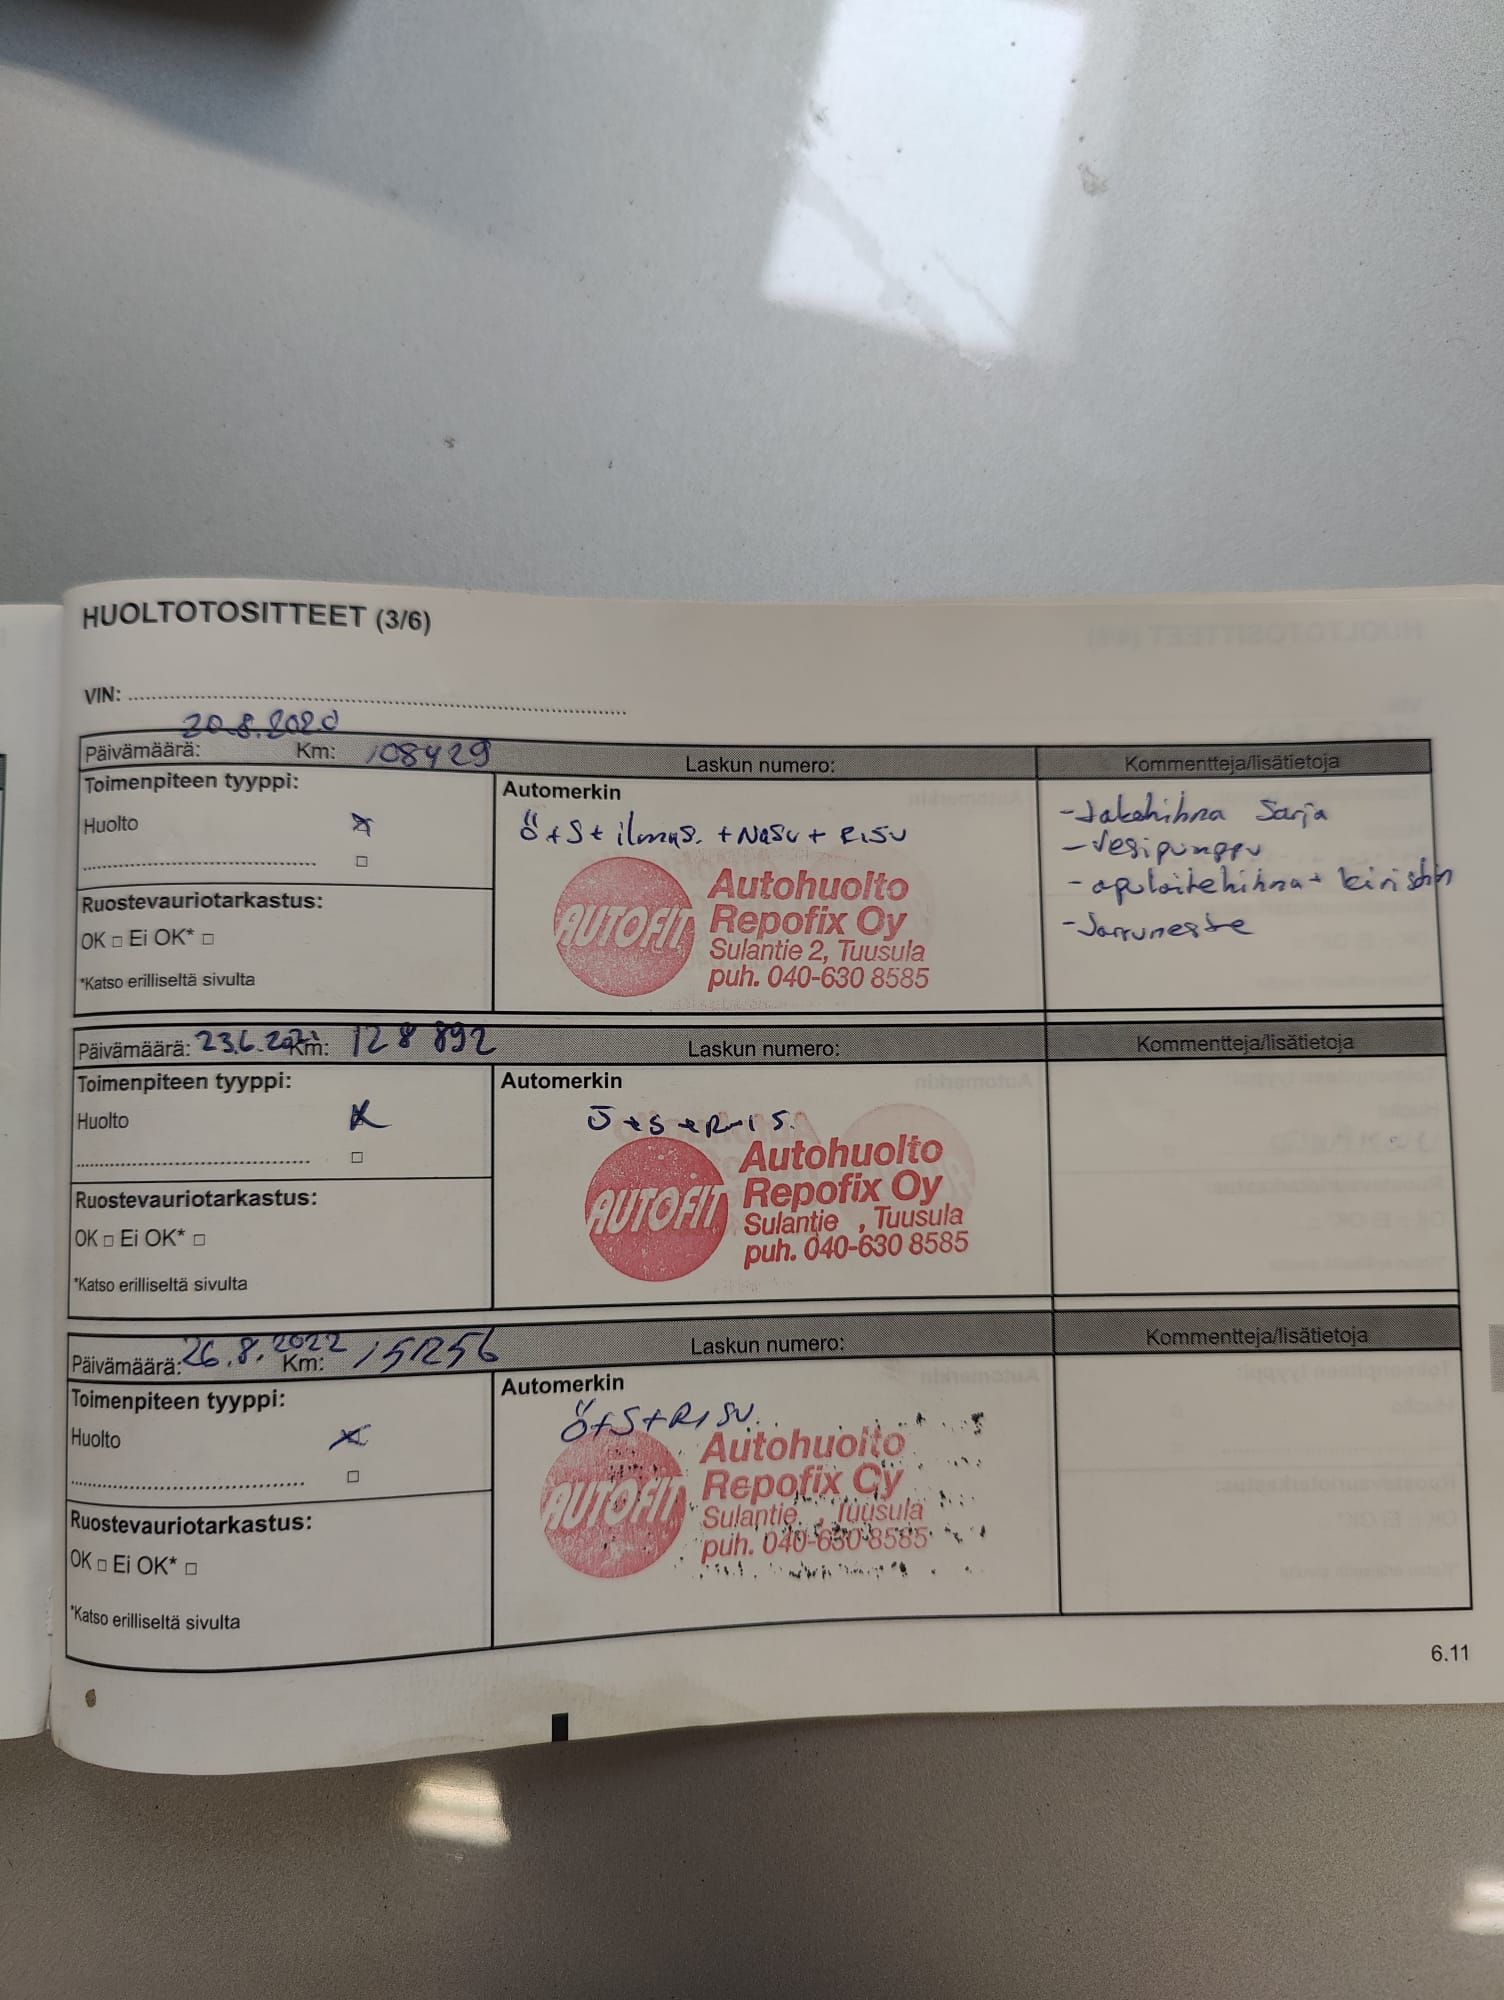 HUOLTOTOSITTEET (3/6)
VIN:
20.8.2020
Päivämäärä: Km: 108429 Laskun numero: Kommentteja/lisätietoja
Toimenpiteen tyyppi:
Huolto
Ruostevauriotarkastus:
OK □ Ei OK* □
*Katso erilliseltä sivulta
Automerkin
Ö+S+ilmas. +NaSu+RiSu
AUTOFIT
Autohuolto
Repofix Oy
Sulantie 2, Tuusula
puh. 040-630 8585
-Jakohihna Sarja
-Vesipumppu
-apulaitehihna+ kiristin
-Jarruneste
Päivämäärä: 23.6. Km: 128 892 Laskun numero: Kommentteja/lisätietoja
Toimenpiteen tyyppi:
Huolto
Ruostevauriotarkastus:
OK □ Ei OK* □
*Katso erilliseltä sivulta
Automerkin
Ö+S+R-iS.
AUTOFIT
Autohuolto
Repofix Oy
Sulantie , Tuusula
puh. 040-630 8585
Päivämäärä: 26.8.2022 Km: 15256 Laskun numero: Kommentteja/lisätietoja
Toimenpiteen tyyppi:
Huolto
Ruostevauriotarkastus:
OK □ Ei OK* □
*Katso erilliseltä sivulta
Automerkin
Ö+S+RiSu.
AUTOFIT
Autohuolto
Repofix Oy
Sulantie , Tuusula
puh. 040-630 8585
6.11